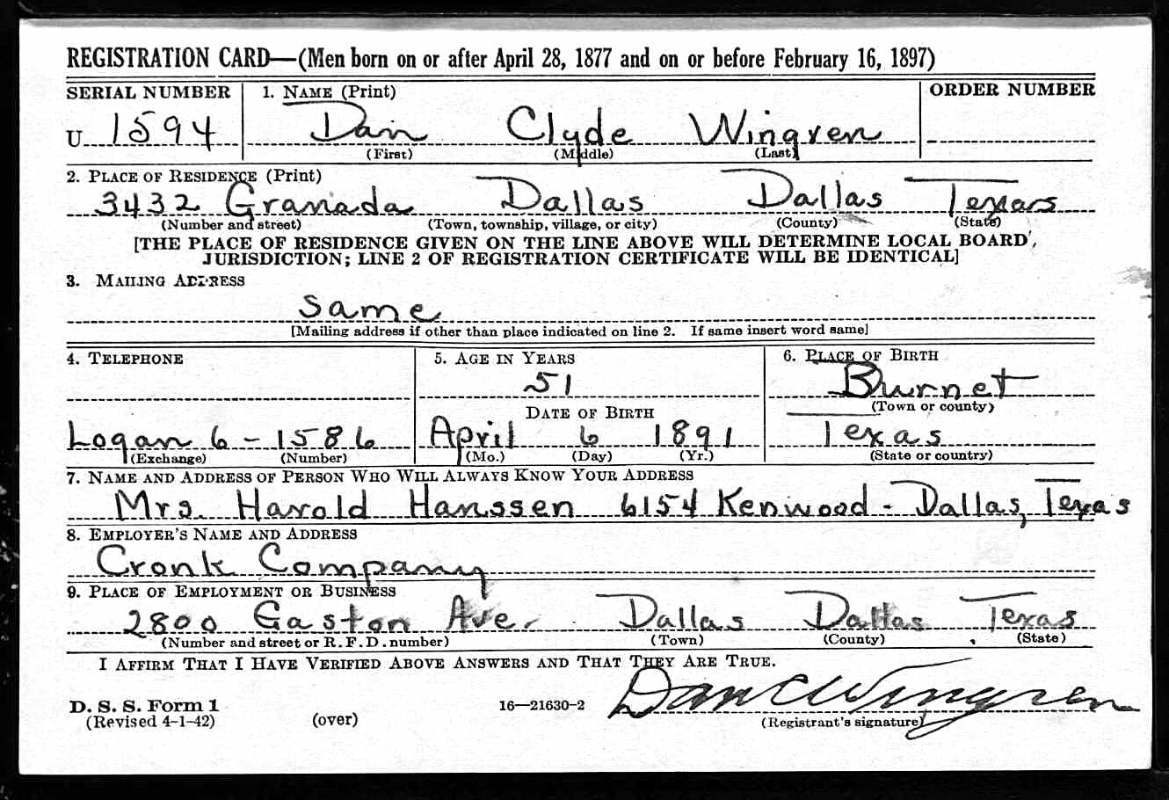 REGISTRATION CARD—(Men born on or after April 28, 1877 and on or before February 16, 1897)
SERIAL NUMBER 1. NAME (Print) ORDER NUMBER
U 1594 Dan Clyde Wingren
(First) (Middle) (Last)
2. PLACE OF RESIDENCE (Print)
3432 Granada Dallas Dallas Texas
(Number and street) (Town, township, village, or city) (County) (State)
[THE PLACE OF RESIDENCE GIVEN ON THE LINE ABOVE WILL DETERMINE LOCAL BOARD
JURISDICTION; LINE 2 OF REGISTRATION CERTIFICATE WILL BE IDENTICAL]
3. MAILING ADDRESS
same
[Mailing address if other than place indicated on line 2. If same insert word same]
4. TELEPHONE 5. AGE IN YEARS 6. PLACE OF BIRTH
51 Burnet
DATE OF BIRTH (Town or county)
Logan 6-1586 April 6 1891 Texas
(Exchange) (Number) (Mo.) (Day) (Yr.) (State or country)
7. NAME AND ADDRESS OF PERSON WHO WILL ALWAYS KNOW YOUR ADDRESS
Mrs. Harold Hanssen 6154 Kenwood - Dallas, Texas
8. EMPLOYER'S NAME AND ADDRESS
Cronk Company
9. PLACE OF EMPLOYMENT OR BUSINESS
2800 Gaston Ave. Dallas Dallas Texas
(Number and street or R. F. D. number) (Town) (County) (State)
I AFFIRM THAT I HAVE VERIFIED ABOVE ANSWERS AND THAT THEY ARE TRUE.
Dan C Wingren
D. S. S. Form 1 16—21630-2
(Revised 4-1-42) (over) (Registrant's signature)